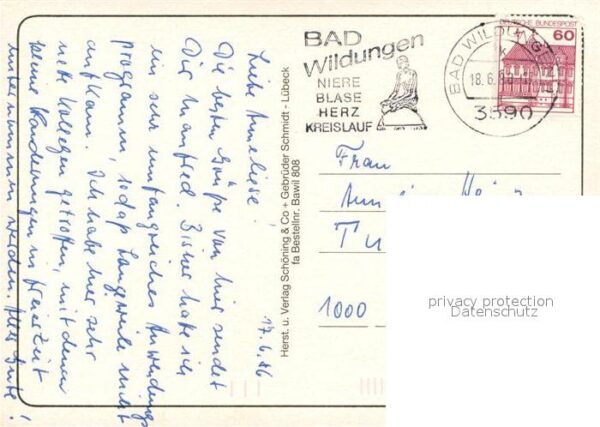 17.6.86
Liebe Anneliese!
Die besten Grüße von hier sendet
Dir Manfred. Bisher hatte ich
ein sehr umfangreiches Anwendungs
programm, so daß Langeweile nicht
aufkam. Ich habe hier sehr
nette Kollegen getroffen, mit denen
kleine Wanderungen in Freizeit
unternommen werden. Alles Gute!
Herst. u. Verlag Schöning & Co + Gebrüder Schmidt - Lübeck
fa Bestellnr. Bawil 808
BAD
Wildungen
NIERE
BLASE
HERZ
KREISLAUF
BAD WILDUNGEN
18.6.86
3590
DEUTSCHE BUNDESPOST
60
Frau
1000
privacy protection
Datenschutz